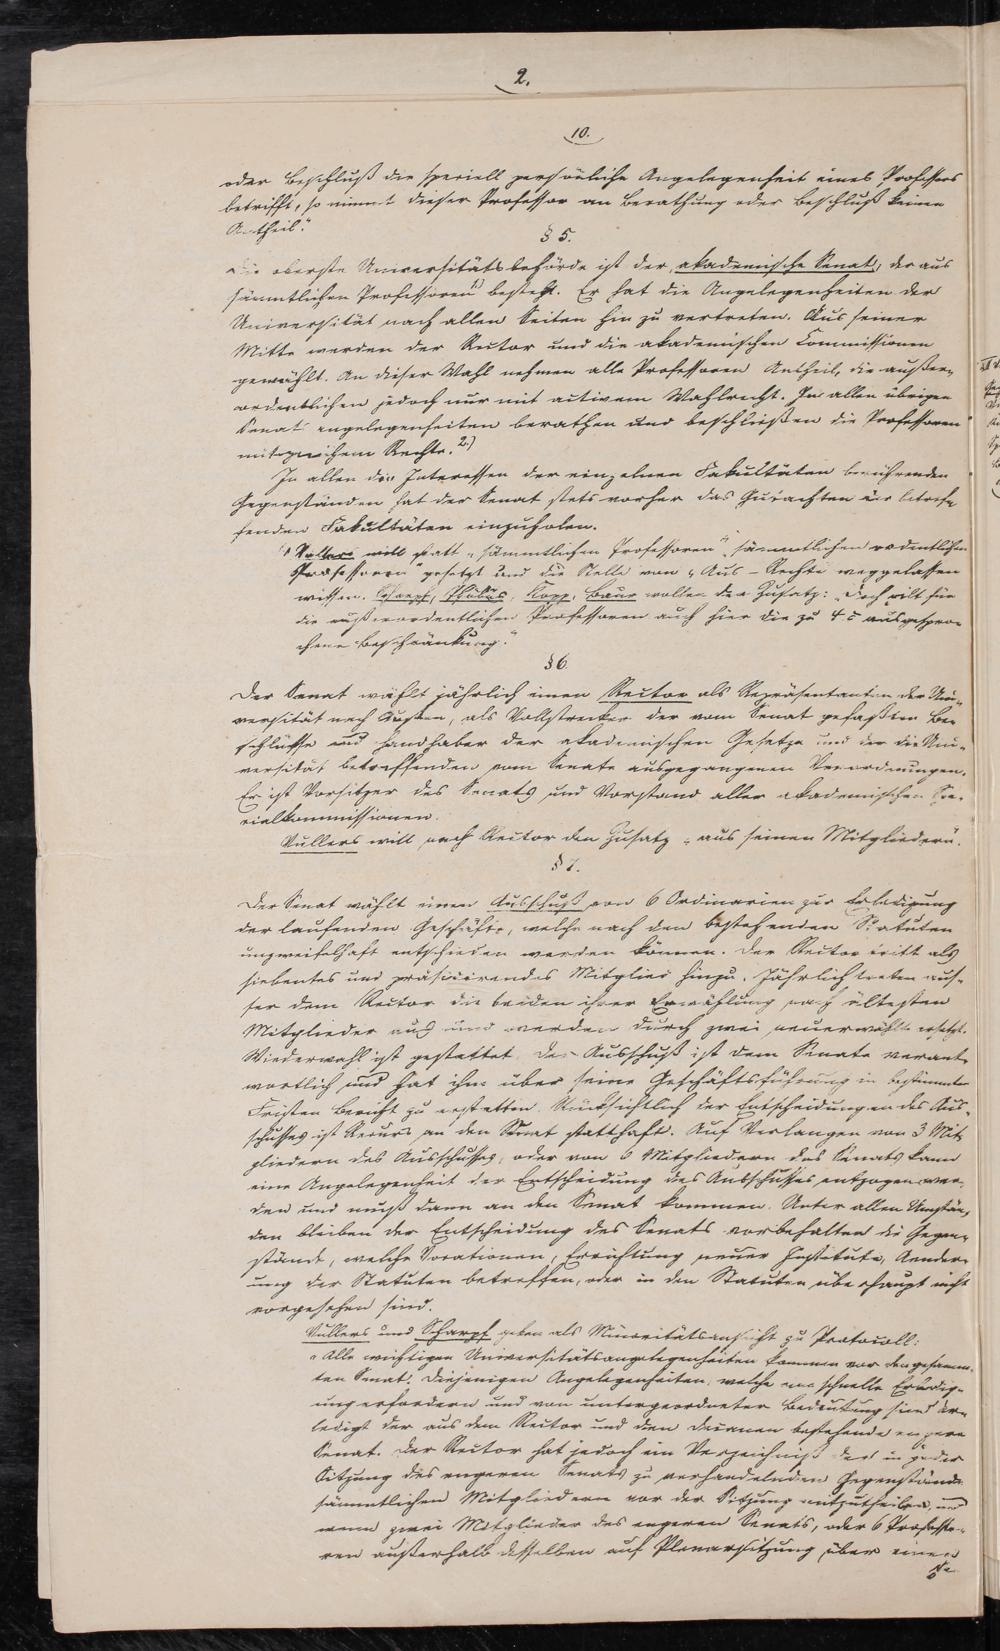 2.
10.
oder Beschluß die speciell persönliche Angelegenheit eines Professors
betrifft, so nimmt dieser Professor an Berathung oder Beschluß keinen
Antheil."
§ 5.
Die oberste Universitätsbehörde ist der akademische Senat, der aus
sämmtlichen Professoren 1) besteht. Er hat die Angelegenheiten der
Universität nach allen Seiten hin zu vertreten. Aus seiner
Mitte werden der Rector und die akademischen Commissionen
gewählt. An dieser Wahl nehmen alle Professoren Antheil, die außer-
ordentlichen jedoch nur mit activem Wahlrecht. In allen übrigen
Senatsangelegenheiten berathen und beschließen die Professoren
mit gleichem Rechte. 2.)
In allen die Interessen der einzelnen Fakultäten berührenden
Gegenständen hat der Senat stets vorher das Gutachten der betref-
fenden Fakultäten einzuholen.
1) Vullers will statt „sämmtlichen Professoren" „sämmtlichen ordentlichen
Professoren" gesetzt und die Stelle von „Aus – Rechte weggelassen
wissen. Scharpf, Phöbus, Kopp, Baur wollen den Zusatz: „Doch gilt für
die außerordentlichen Professoren auch hier die zu 4 c ausgespro-
chene Beschränkung."
§ 6.
Der Senat wählt jährlich einen Rector als Repräsentanten der Uni-
versität nach Außen, als Vollstrecker der vom Senat gefaßten Be-
schlüsse und Handhaber der akademischen Gesetze und der die Uni-
versität betreffenden vom Senate ausgegangenen Verordnungen.
Er ist Vorsitzer des Senats und Vorstand aller akademischen Spe-
cialkommissionen.
Vullers will nach Rector den Zusatz „aus seinen Mitgliedern".
§ 7.
Der Senat wählt einen Ausschuß von 6 Ordinarien zur Erledigung
der laufenden Geschäfte, welche nach den bestehenden Statuten
unzweifelhaft entschieden werden können. Der Rector tritt als
siebentes und präsidirendes Mitglied hinzu. Jährlich treten aus-
ser dem Rector die beiden ihrer Erwählung nach ältesten
Mitglieder aus und werden durch zwei neuerwählte ersetzt.
Wiederwahl ist gestattet. Der Ausschuß ist dem Senate verant-
wortlich und hat ihm über seine Geschäftsführung in bestimmten
Fristen Bericht zu erstatten. Rücksichtlich der Entscheidungen des Aus-
schusses ist Recurs an den Senat statthaft. Auf Verlangen von 3 Mit-
gliedern des Ausschusses, oder von 6 Mitgliedern des Senats kann
eine Angelegenheit der Entscheidung des Ausschusses entzogen wer-
den und muß dann an den Senat kommen. Unter allen Umstän-
den bleiben der Entscheidung des Senats vorbehalten die Gegen-
stände, welche Vocationen, Errichtung neuer Institute, Aender-
ung der Statuten betreffen, oder in den Statuten überhaupt nicht
vorgesehen sind.
Vullers und Scharpf geben als Minoritätsansicht zu Protocoll:
„Alle wichtigen Universitätsangelegenheiten kommen vor den gesamm-
ten Senat. Diejenigen Angelegenheiten, welche eine schnelle Erledig-
ung erfordern und von untergeordneter Bedeutung sind er-
ledigt der aus dem Rector und den Decanen bestehende engere
Senat. Der Rector hat jedoch ein Verzeichniß der in jeder
Sitzung des engeren Senats zu verhandelnden Gegenstände
sämmtlichen Mitgliedern vor der Sitzung mitzutheilen, und
wenn zwei Mitglieder des engeren Senats, oder 6 Professo-
ren außerhalb desselben auf Plenarsitzung über einen